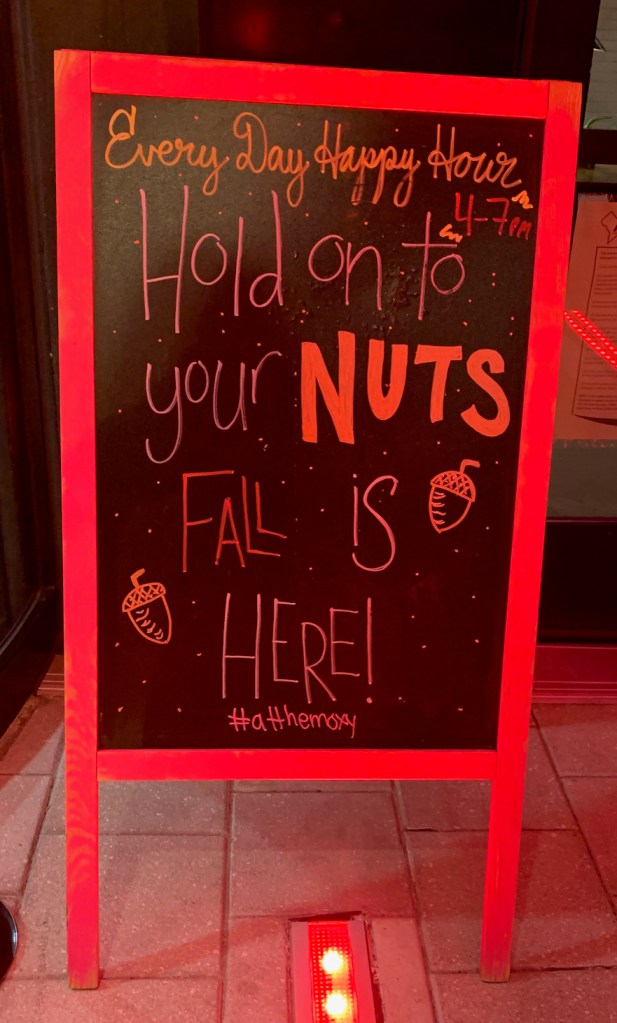 Every Day Happy Hour
4-7PM
Hold on to
your NUTS
FALL is
HERE!
#atthemoxy